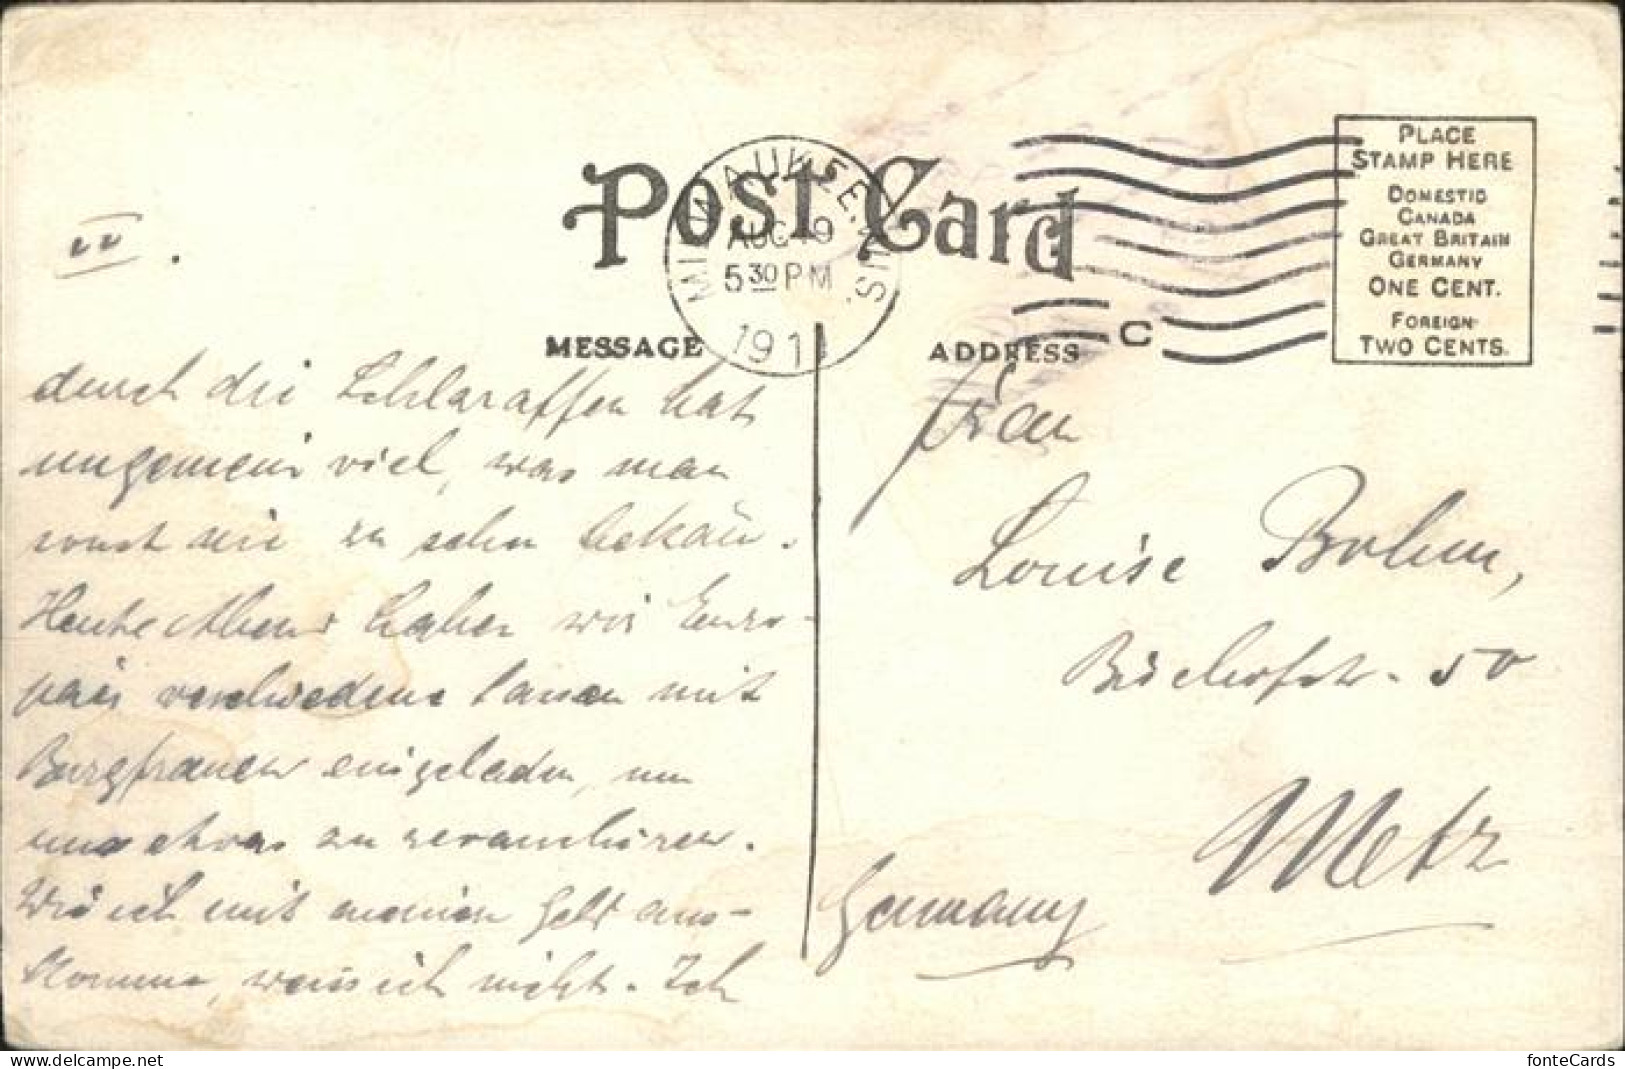 Post Card
MILWAUKEE. WIS.
AUG 19
5 30 PM
1911
C
PLACE
STAMP HERE
DOMESTIC
CANADA
GREAT BRITAIN
GERMANY
ONE CENT.
FOREIGN
TWO CENTS.
MESSAGE
ADDRESS
durch die Schlaraffen hat
ungemein viel, was man
sonst nie zu sehn bekäm.
Heute Abend haben wir Euro-
päer verschiedene Sassen mit
Burgfrauen eingeladen, um
uns etwas zu revanchieren.
Wie ich mit meinem Geld aus-
komme, weiss ich nicht. Ich
Frau
Louise Bohm,
Bischofstr. 50
Metz
Germany
fonteCards
delcampe.net